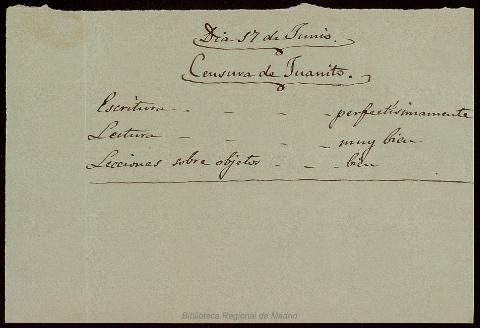 Dia 17 de Junio.
Censura de Juanito.
Escritura - - - - perfectísimamente
Leitura - - - - muy bien
Lecciones sobre objetos - - - bien
Biblioteca Regional de Madrid